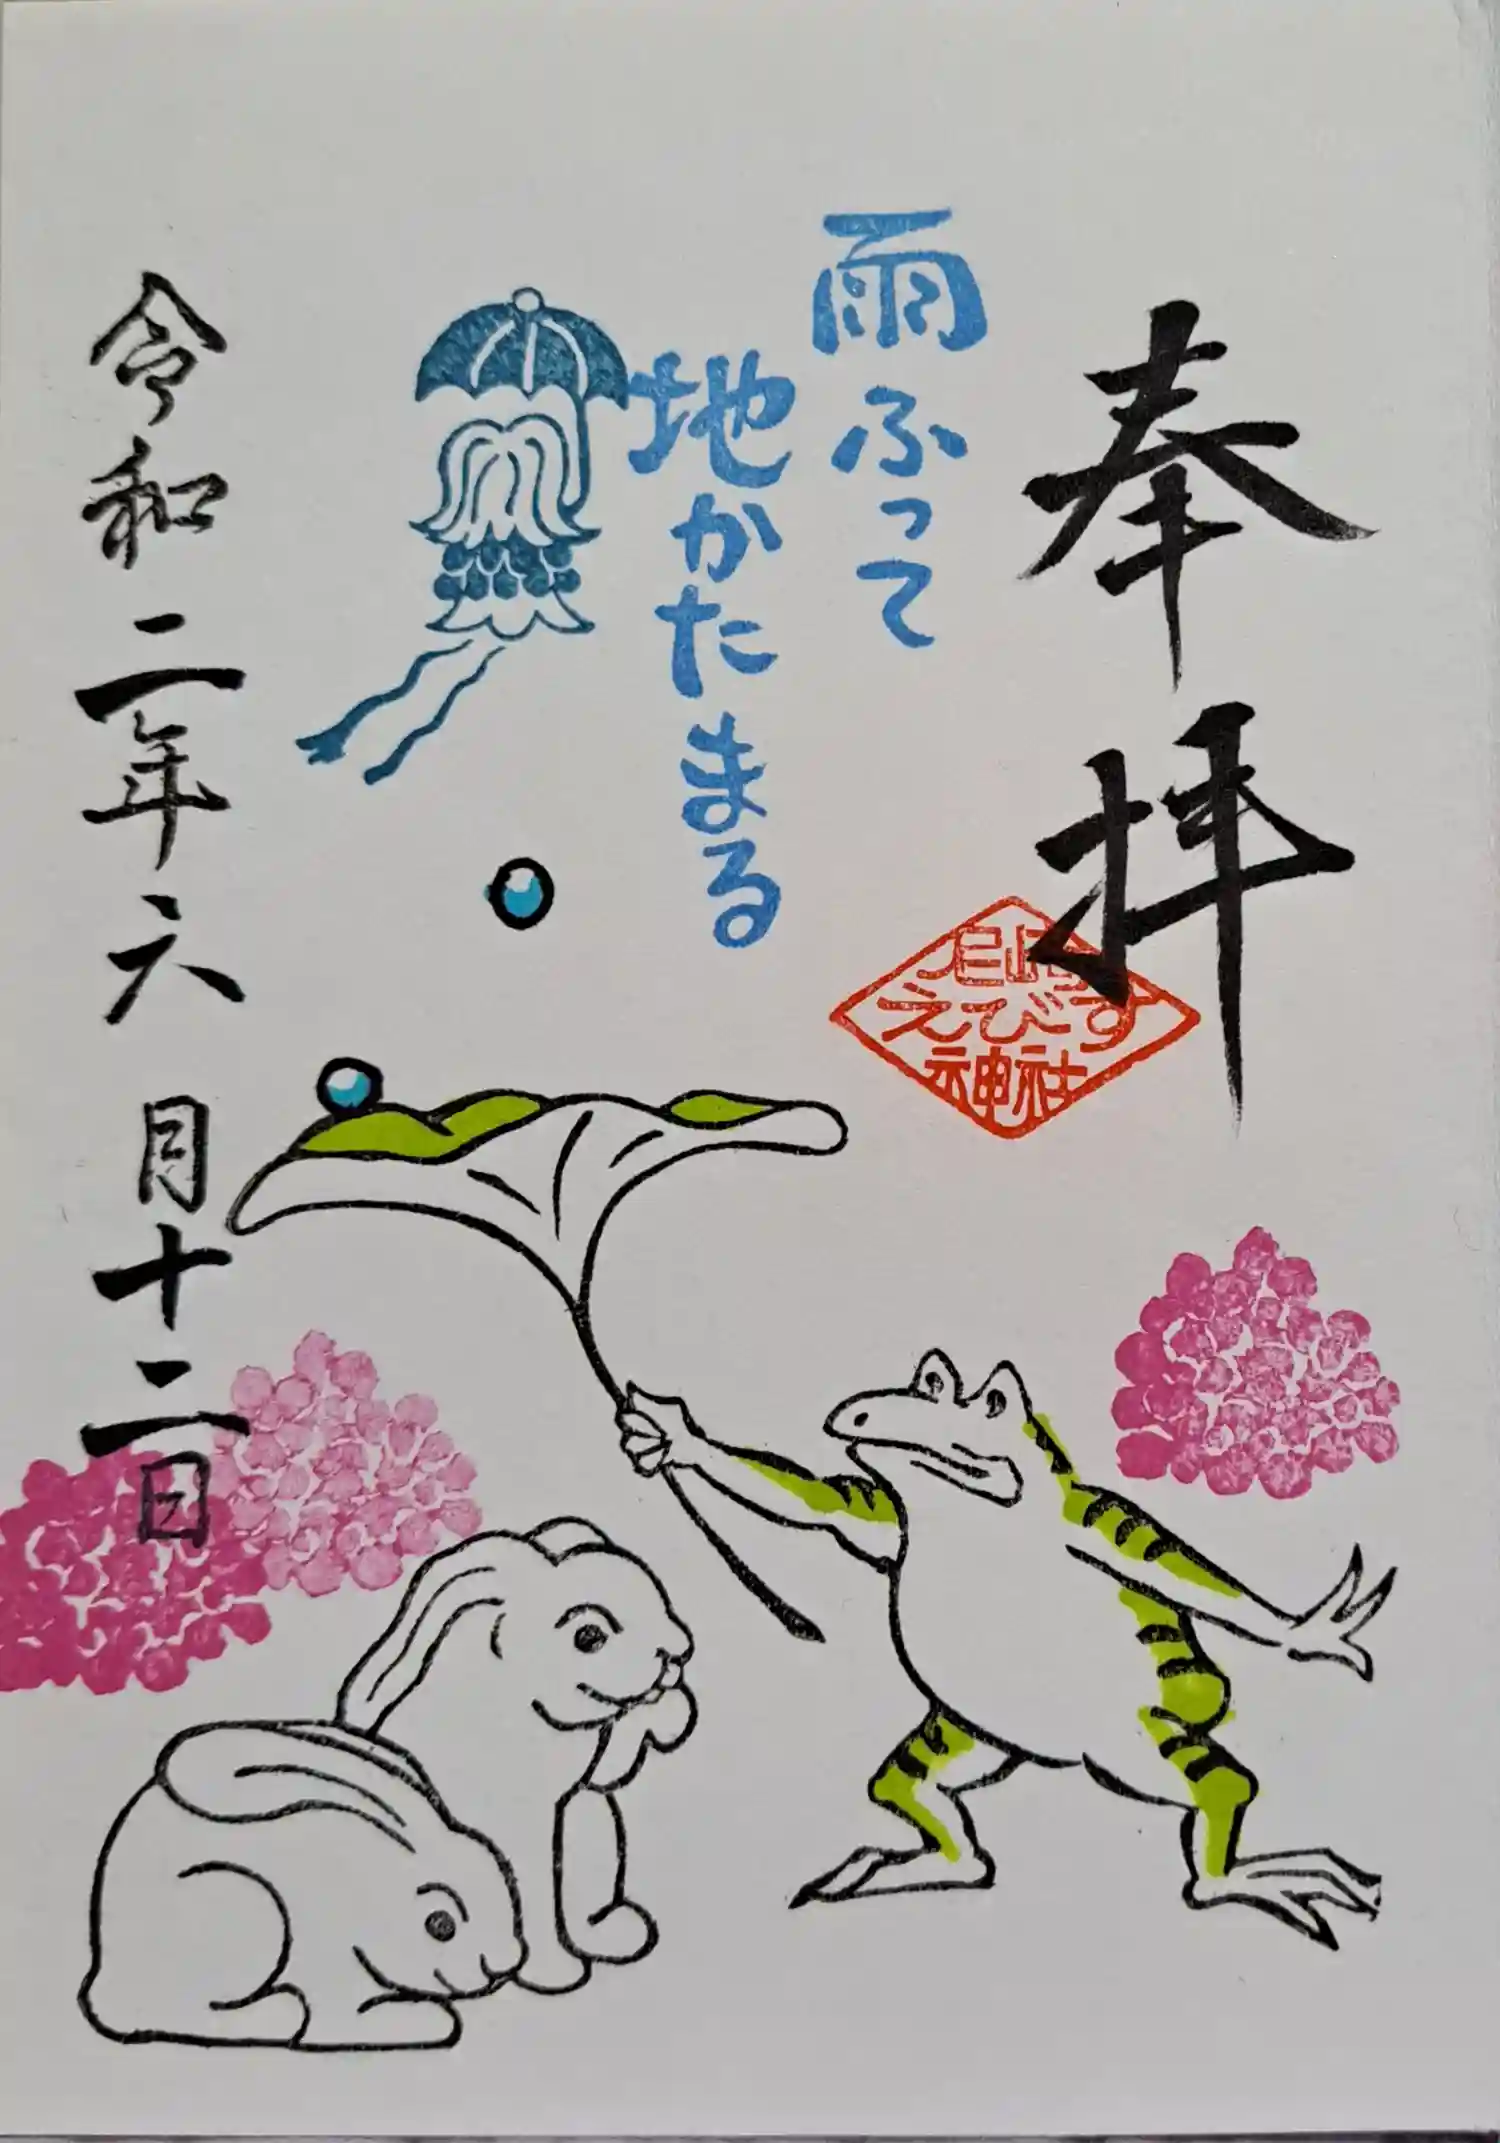 奉拝
雨ふって
地かたまる
えびす
神社
令和二年六月十二日